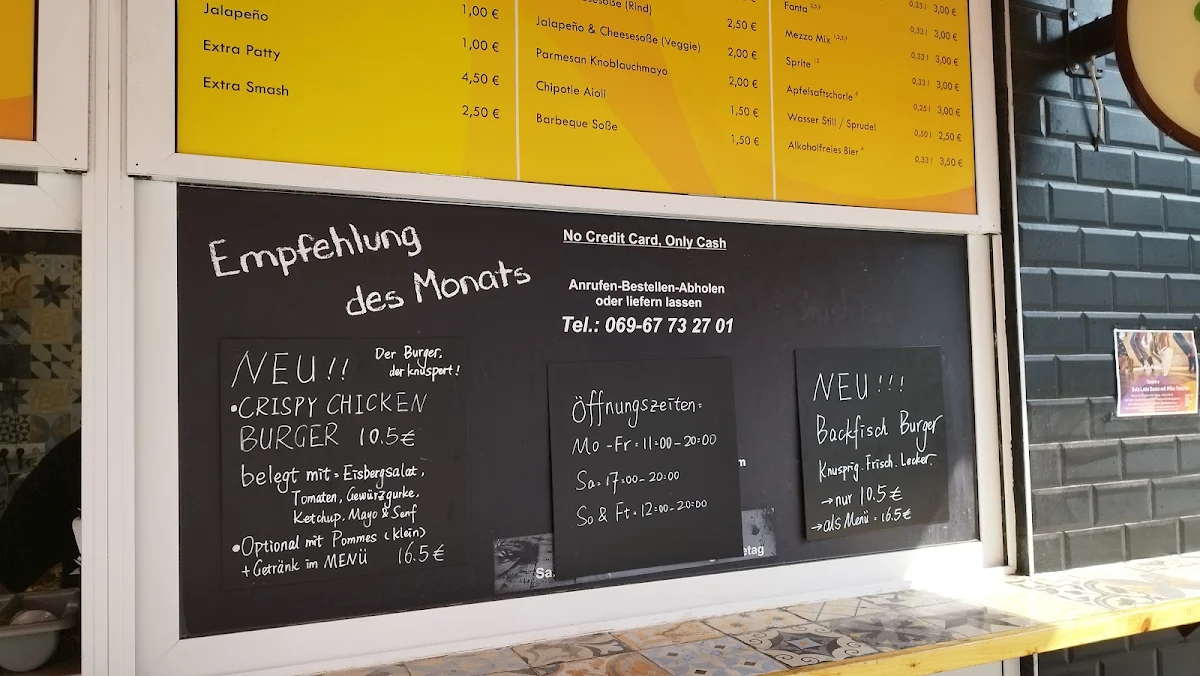 Jalapeño 1,00 €
Extra Patty 1,00 €
Extra Smash 4,50 €
2,50 €
(Rind)
2,50 €
Jalapeño & Cheesesoße (Veggie) 2,00 €
Parmesan Knoblauchmayo 2,00 €
Chipotle Aioli 1,50 €
Barbeque Soße 1,50 €
Fanta 0,33 l 3,00 €
Mezzo Mix 0,33 l 3,00 €
Sprite 0,33 l 3,00 €
Apfelsaftschorle 0,33 l 3,00 €
Wasser Still / Sprudel 0,25 l 3,00 €
0,50 l 2,50 €
Alkoholfreies Bier 0,33 l 3,50 €
Empfehlung
des Monats
No Credit Card, Only Cash
Anrufen-Bestellen-Abholen
oder liefern lassen
Tel.: 069-67 73 27 01
NEU!!
Der Burger,
der knuspert!
•CRISPY CHICKEN
BURGER 10.5€
belegt mit: Eisbergsalat,
Tomaten, Gewürzgurke,
Ketchup, Mayo & Senf
•Optional mit Pommes (klein)
+ Getränk im MENÜ 16.5€
Öffnungszeiten:
Mo - Fr: 11:00 - 20:00
Sa: 17:00 - 20:00
So & Ft: 12:00 - 20:00
Sa.
etag
NEU!!!
Backfisch Burger
Knusprig. Frisch. Lecker.
→ nur 10.5€
→ als Menü: 16.5€